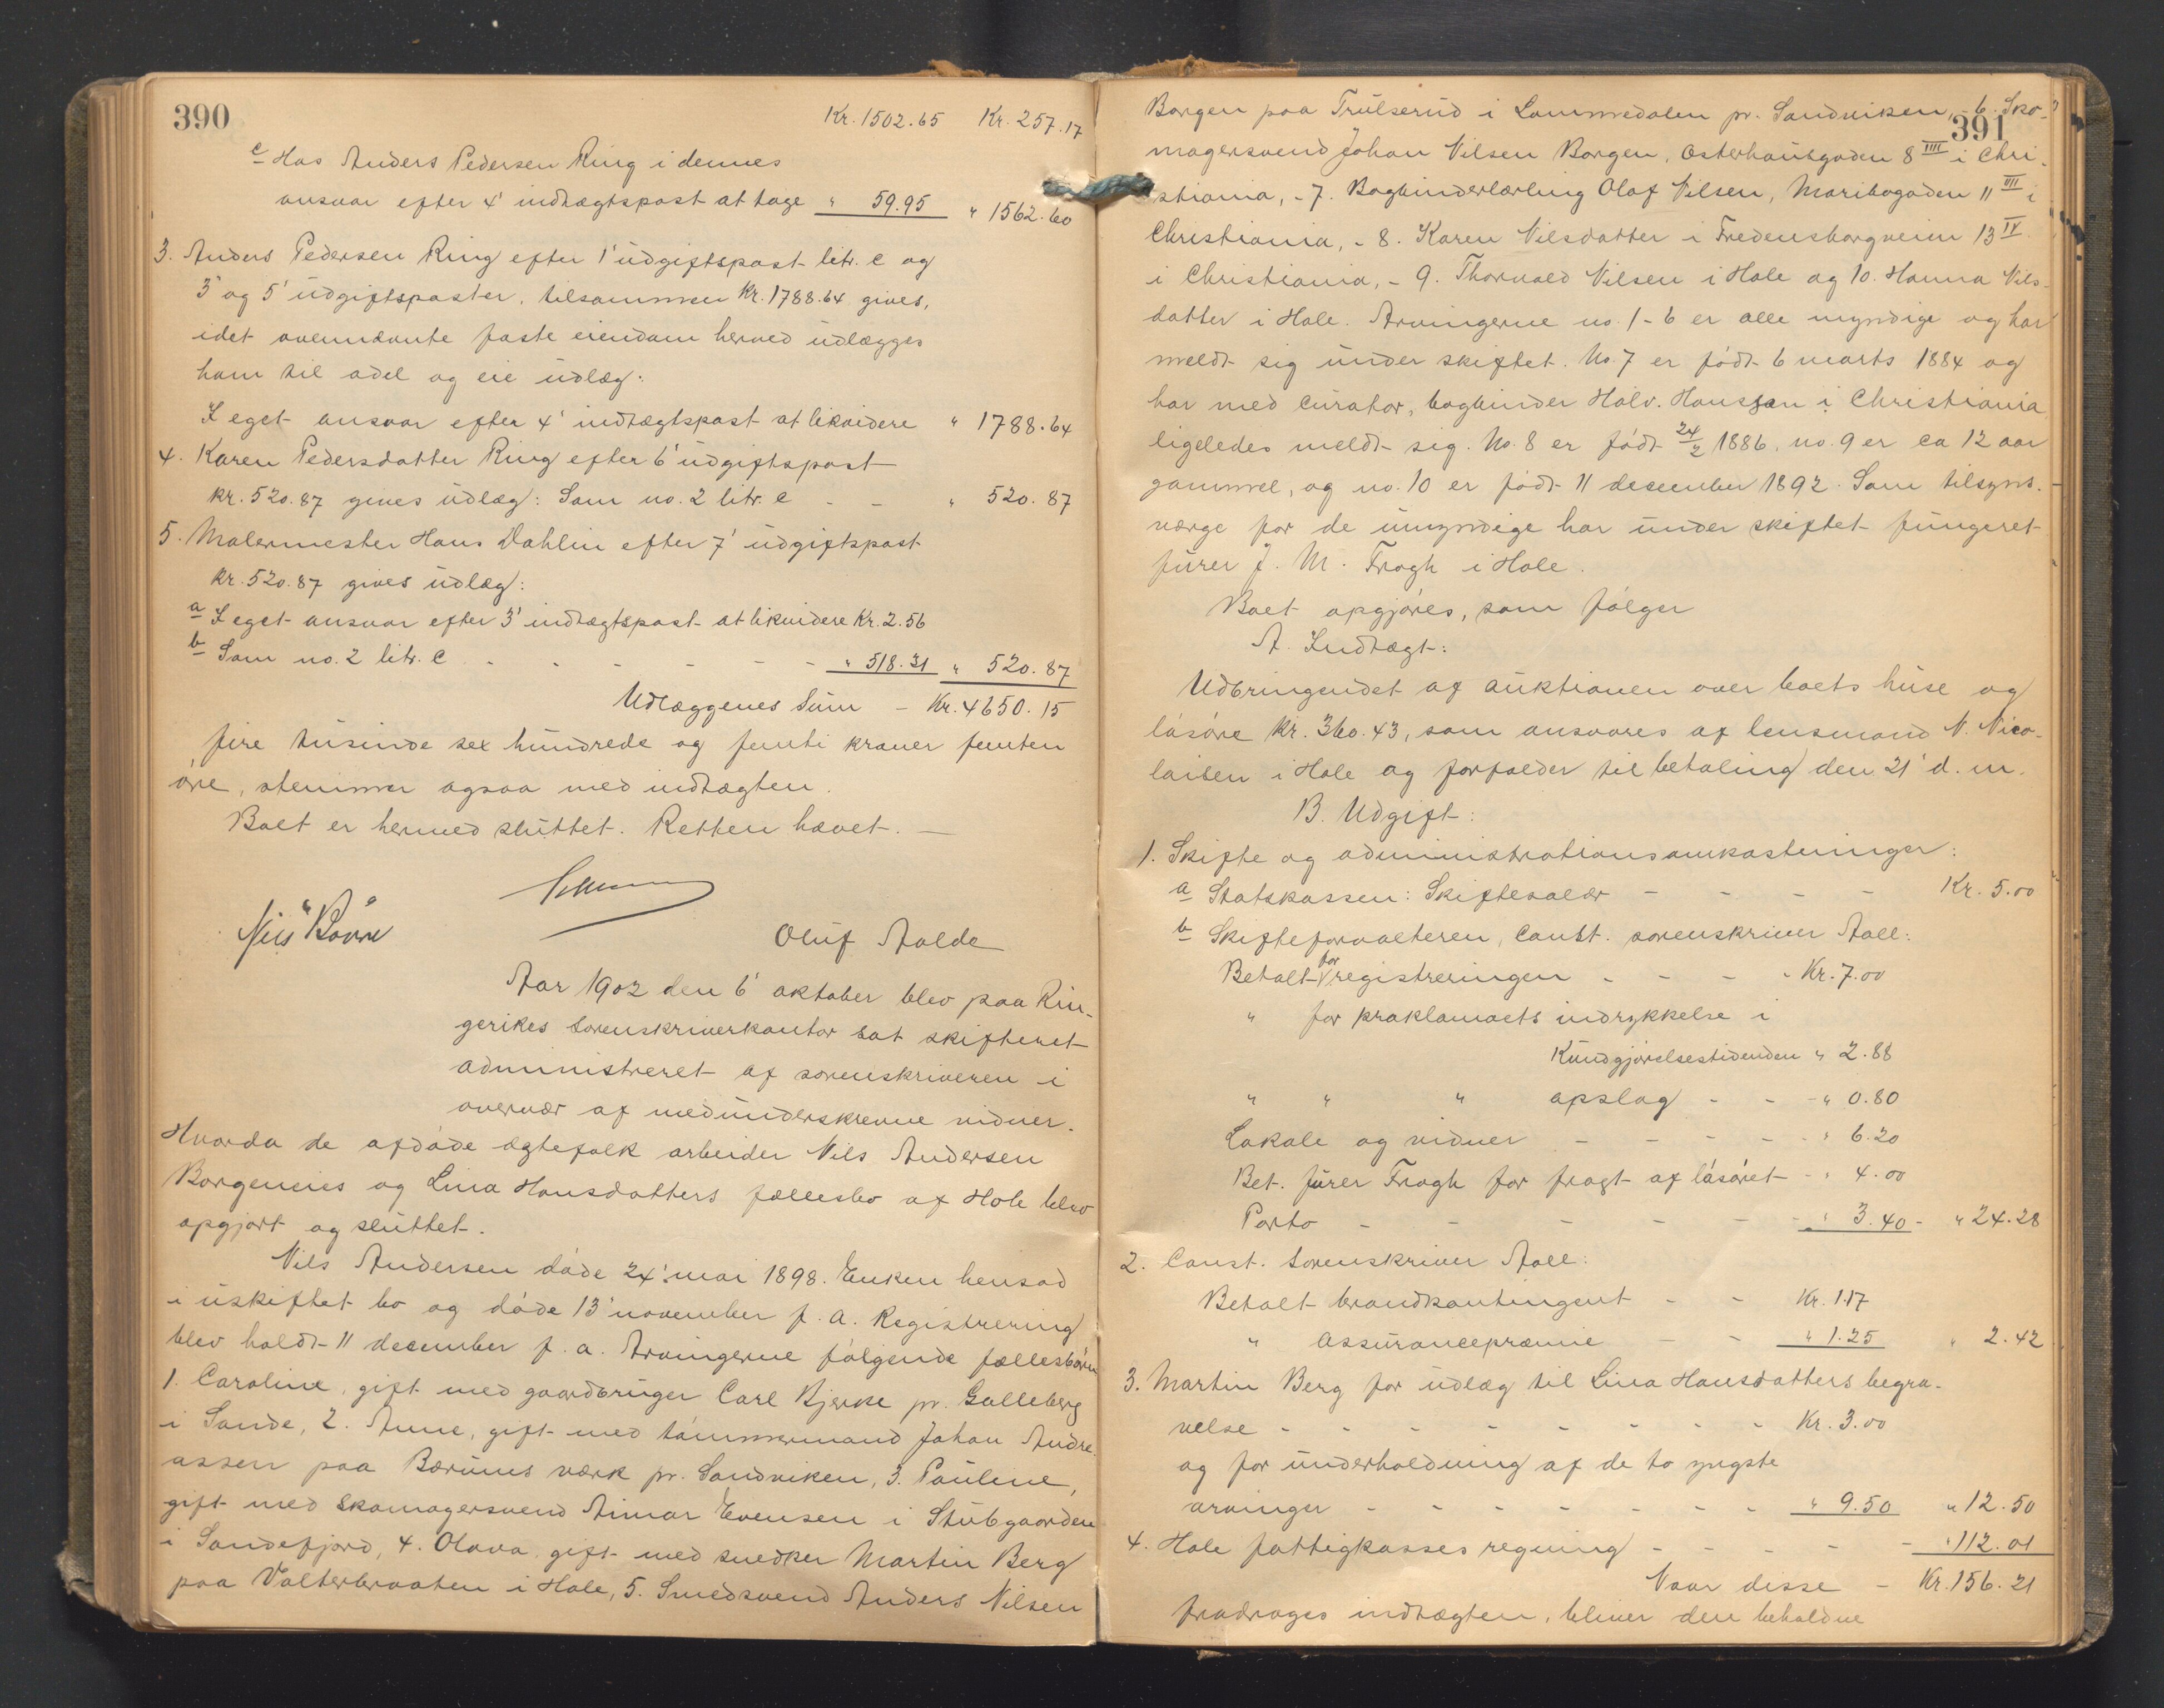 390
Kr. 1502.65 Kr. 257.17
c Hos Anders Pedersen Ring i dennes
ansvar efter 4' indtægtspost at tage " 59.95 " 1562.60
3. Anders Pedersen Ring efter 1' udgiftspost litr. c og
3' og 5' udgiftsposter, tilsammen kr. 1788.64 gives,
idet ovennævnte faste eiendom herved udlægges
ham til odel og eie udlæg:
I eget ansvar efter 4' indtægtspost at likvidere " 1788.64
4. Karen Pedersdatter Ring efter 6' udgiftspost
kr. 520.87 gives udlæg: Som no. 2 litr. c - - " 520.87
5. Malermester Hans Dahlin efter 7' udgiftspost
kr. 520.87 gives udlæg:
a I eget ansvar efter 3' indtægtspost at likvidere Kr. 2.56
b Som no. 2 litr. c - - - - - - " 518.31 " 520.87
Udlæggenes Sum - Kr. 4650.15
fire tusinde sex hundrede og femti kroner femten
øre, stemmer ogsaa med indtægten.
Boet er hermed sluttet. Retten hævet. —
Oluf Aalde
Aar 1902 den 6' oktober blev paa Rin-
gerikes sorenskriverkontor sat skifteret
administreret af sorenskriveren i
overvær af medunderskrevne vidner.
Hvorda de afdøde ægtefolk arbeider Nils Andersen
Borgeneies og Lina Hansdatters fællesbo af Hole blev
opgjort og sluttet.
Nils Andersen døde 24' mai 1898. Enken hensad
i uskiftet bo og døde 13' november f. a. Registrering
blev holdt 11 december f. a. Arvingerne følgende fællesbørn
1. Caroline, gift med gaardbruger Carl Bjerke pr. Galleberg
i Sande, 2. Anne, gift med tømmermand Johan Andre-
assen paa Bærums værk pr. Sandviken, 3. Pauline,
gift med skomagersvend Aimar Evensen i Stubgaarden
i Sandefjord, 4. Olava, gift med snedker Martin Berg
paa Valterbraaten i Hole, 5. Smedsvend Anders Nilsen
391
Borgen paa Trulserud i Lommedalen pr. Sandviken, - 6. Sko-
magersvend Johan Nilsen Borgen, Osterhausgaden 8 IIII i Chri-
stiania, - 7. Bogbinderlærling Olaf Nilsen, Maribogaden 11 III i
Christiania, - 8. Karen Nilsdatter i Fredensborgveien 13 IV
i Christiania, - 9. Thorvald Nilsen i Hole og 10. Hanna Nils-
datter i Hole. Arvingerne no. 1-6 er alle myndige og har
meldt sig under skiftet. No. 7 er født 6 marts 1884 og
har med curator, bogbinder Halv. Hanssen i Christiania
ligeledes meldt sig. No. 8 er født 24/2 1886, no. 9 er ca 12 aar
gammel, og no. 10 er født 11 december 1892. Som tilsyns-
værge for de umyndige har under skiftet fungeret
furer J. M. Fragh i Hole.
Boet opgjøres, som følger
A. Indtægt:
Udbringendet af auktionen over boets huse og
løsøre kr. 360.43, som ansvares af lensmand N. Nico-
laisen i Hole og forfalder til betaling den 21' d. m.
B. Udgift:
1. Skifte og administrationsomkostninger:
a Statskassen: Skiftesalær - - - - Kr. 5.00
b Skifteforvalteren, const. sorenskriver Aall:
Betalt for registreringen - - - - Kr. 7.00
" for proklamaets indrykkelse i
Kundgjørelsestidenden " 2.88
" " " opslag - - - " 0.80
Lokale og vidner - - - - - " 6.20
Bet. furer Fragh for fragt af løsøret - " 4.00
Porto - - - - - - " 3.40 - " 24.28
2. Const. sorenskriver Aall:
Betalt brandkontingent - - Kr. 1.17
" assurancepræmie - - " 1.25 " 2.42
3. Martin Berg for udlæg til Lina Hansdatters begra-
velse - - - - - - - - Kr. 3.00
og for underholdning af de to yngste
arvinger - - - - - - - " 9.50 " 12.50
4. Hole fattigkasses regning - - - - - " 112.01
Naar disse - Kr. 156.21
fradrages indtægten, bliver den beholdne